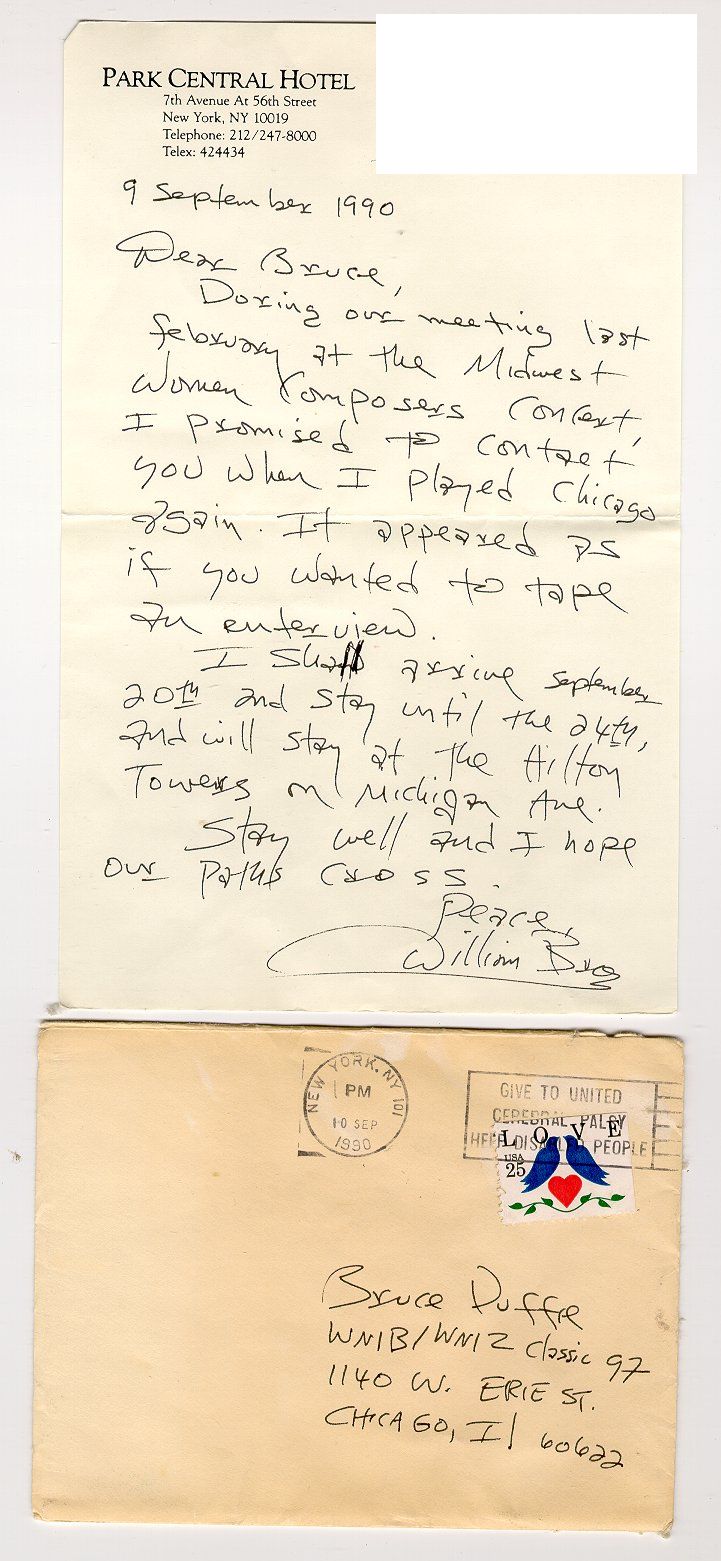 PARK CENTRAL HOTEL
7th Avenue At 56th Street
New York, NY 10019
Telephone: 212/247-8000
Telex: 424434
9 September 1990
Dear Bruce,
During our meeting last
february at the Midwest
Women Composers Concert,
I promised to contact
you when I played Chicago
again. It appeared as
if you wanted to tape
an enterview.
I shall arrive September
20th and stay until the 24th,
and will stay at the Hilton
Towers on Michigan Ave.
Stay well and I hope
our paths cross.
Peace,
William
NEW YORK, NY 101
PM
10 SEP
1990
GIVE TO UNITED
CEREBRAL PALSY
HELP DISABLED PEOPLE
LOVE
USA
25
Bruce Duffie
WNIB/WNIZ Classic 97
1140 W. ERIE ST.
CHICAGO, Il 60622